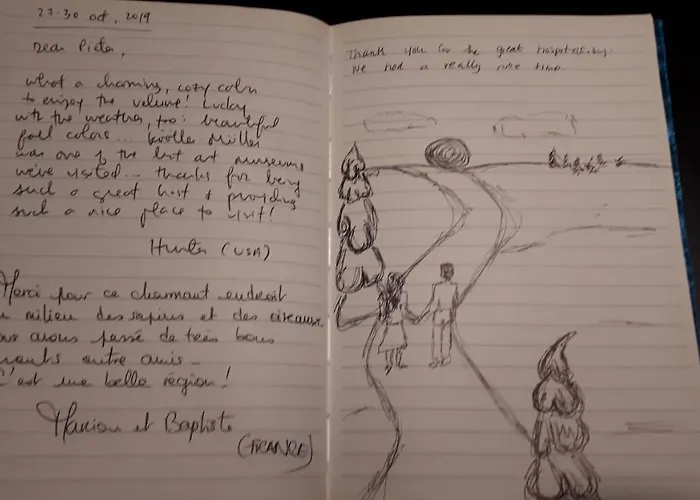 27-30 oct, 2019
Dear Pieter,
what a charming, cozy cabin
to enjoy the Veluwe! Lucky
with the weather, too: beautiful
fall colors... Kröller Müller
was one of the best art museums
we've visited... thanks for being
such a great host & providing
such a nice place to visit!
Hunter (USA)
Merci pour ce charmant endroit
milieu des sapins et des oiseaux
avons passé de très bons
entre amis_
C'est une belle région!
Marion et Baptiste
(FRANCE)
Thank you for the great hospitality.
We had a really nice time